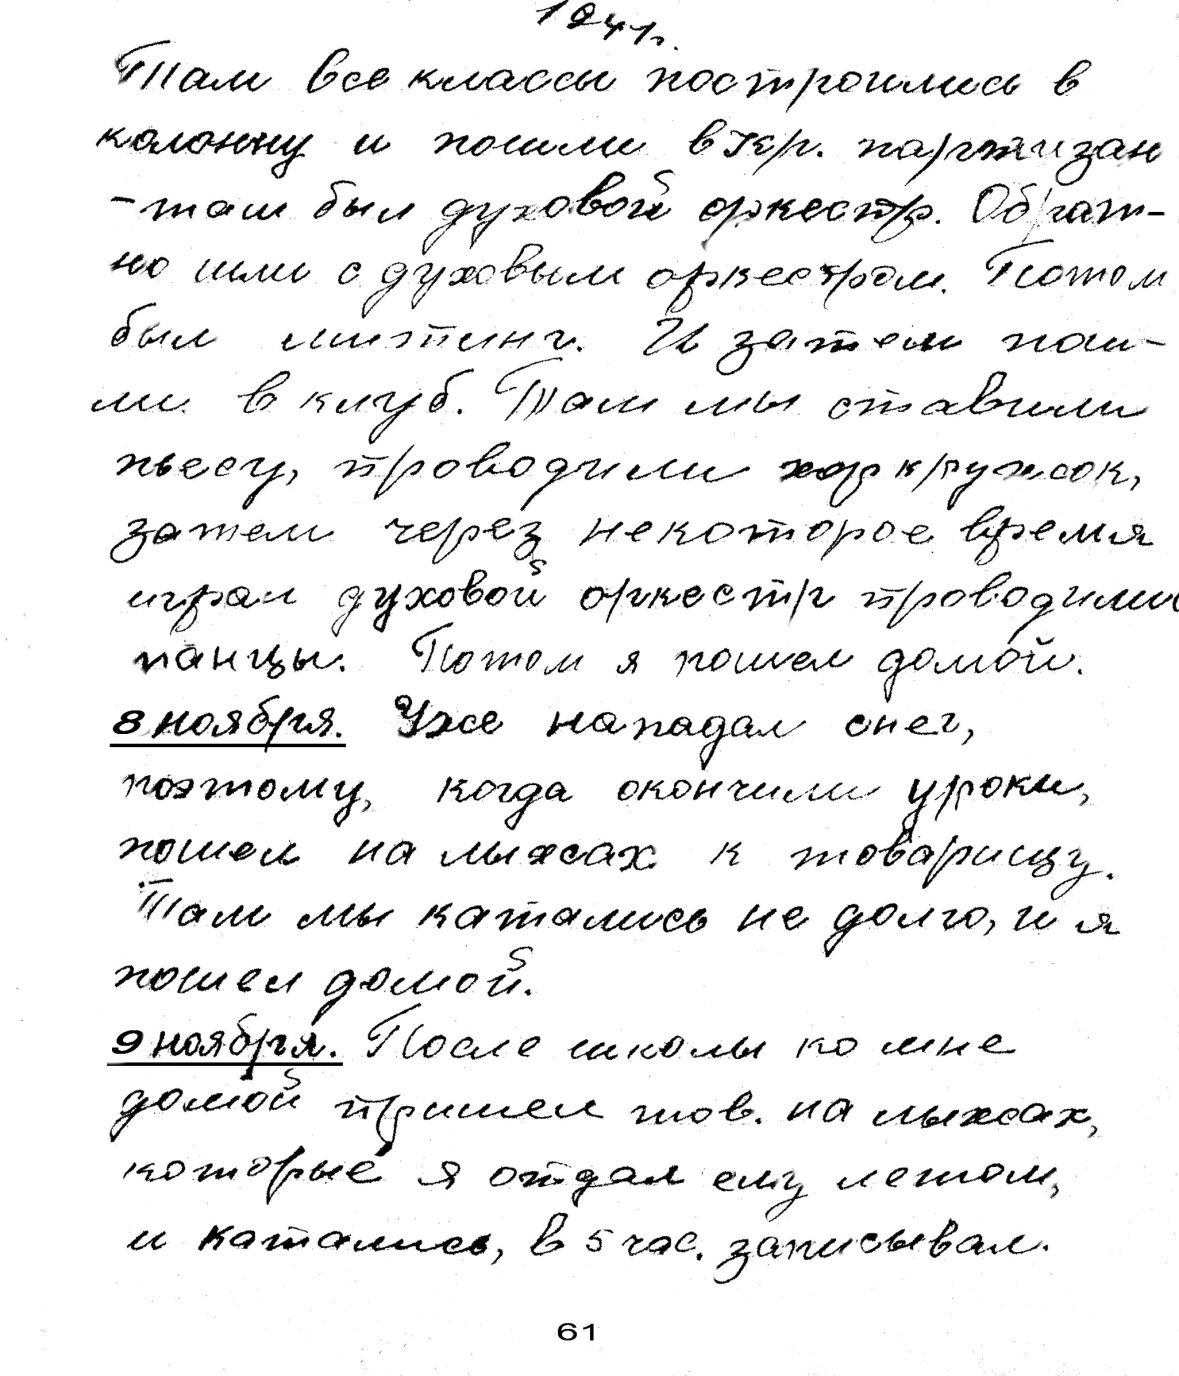 1941г.
Там все классы построились в
колонну и пошли в Кр. партизан
-там был духовой оркестр. Обрат-
но шли с духовым оркестром. Потом
был митинг. И затем пош-
ли в клуб. Там мы ставили
пьесу, проводили хор кружок,
затем через некоторое время
играл духовой оркестр проводили
танцы. Потом я пошел домой.
8 ноября. Уже нападал снег,
поэтому, когда окончили уроки,
пошел на лыжах к товарищу.
Там мы катались не долго, и я
пошел домой.
9 ноября. После школы ко мне
домой пришел тов. на лыжах,
которые я отдал ему летом,
и катались, в 5 час. записывал.
61